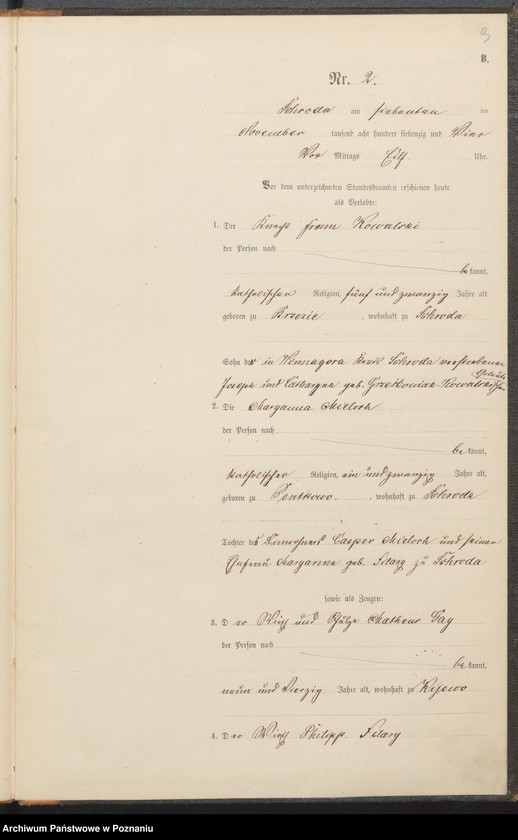 3
B.
Nr. 2.
Schroda am siebenten ten
November tausend acht hundert siebenzig und Vier
Vor Mittags Eilf Uhr.
Vor dem unterzeichneten Standesbeamten erschienen heute
als Verlobte:
1. Der Knecht Franz Kowalski
der Person nach
bekannt,
katholischer Religion, fünf und zwanzig Jahre alt
geboren zu Brzezie, wohnhaft zu Schroda
Sohn der in Winnagora Kreis Schroda verstorbenen
Eheleute
Joseph und Catharyna geb. Kowalskischen
2. Die Maryanna Mieloch
der Person nach
bekannt,
katholischer Religion, ein und zwanzig Jahre alt,
geboren zu Pentkowo, wohnhaft zu Schroda
Tochter des Einwohners Casper Mieloch und seiner
Ehefrau Maryanna geb. zu Schroda
sowie als Zeugen:
3. Der Wirth und Schulze Matheus Gay
der Person nach
bekannt,
neun und Vierzig Jahre alt, wohnhaft zu Kijewo
4. Der Wirth Philipp
Archiwum Państwowe w Poznaniu